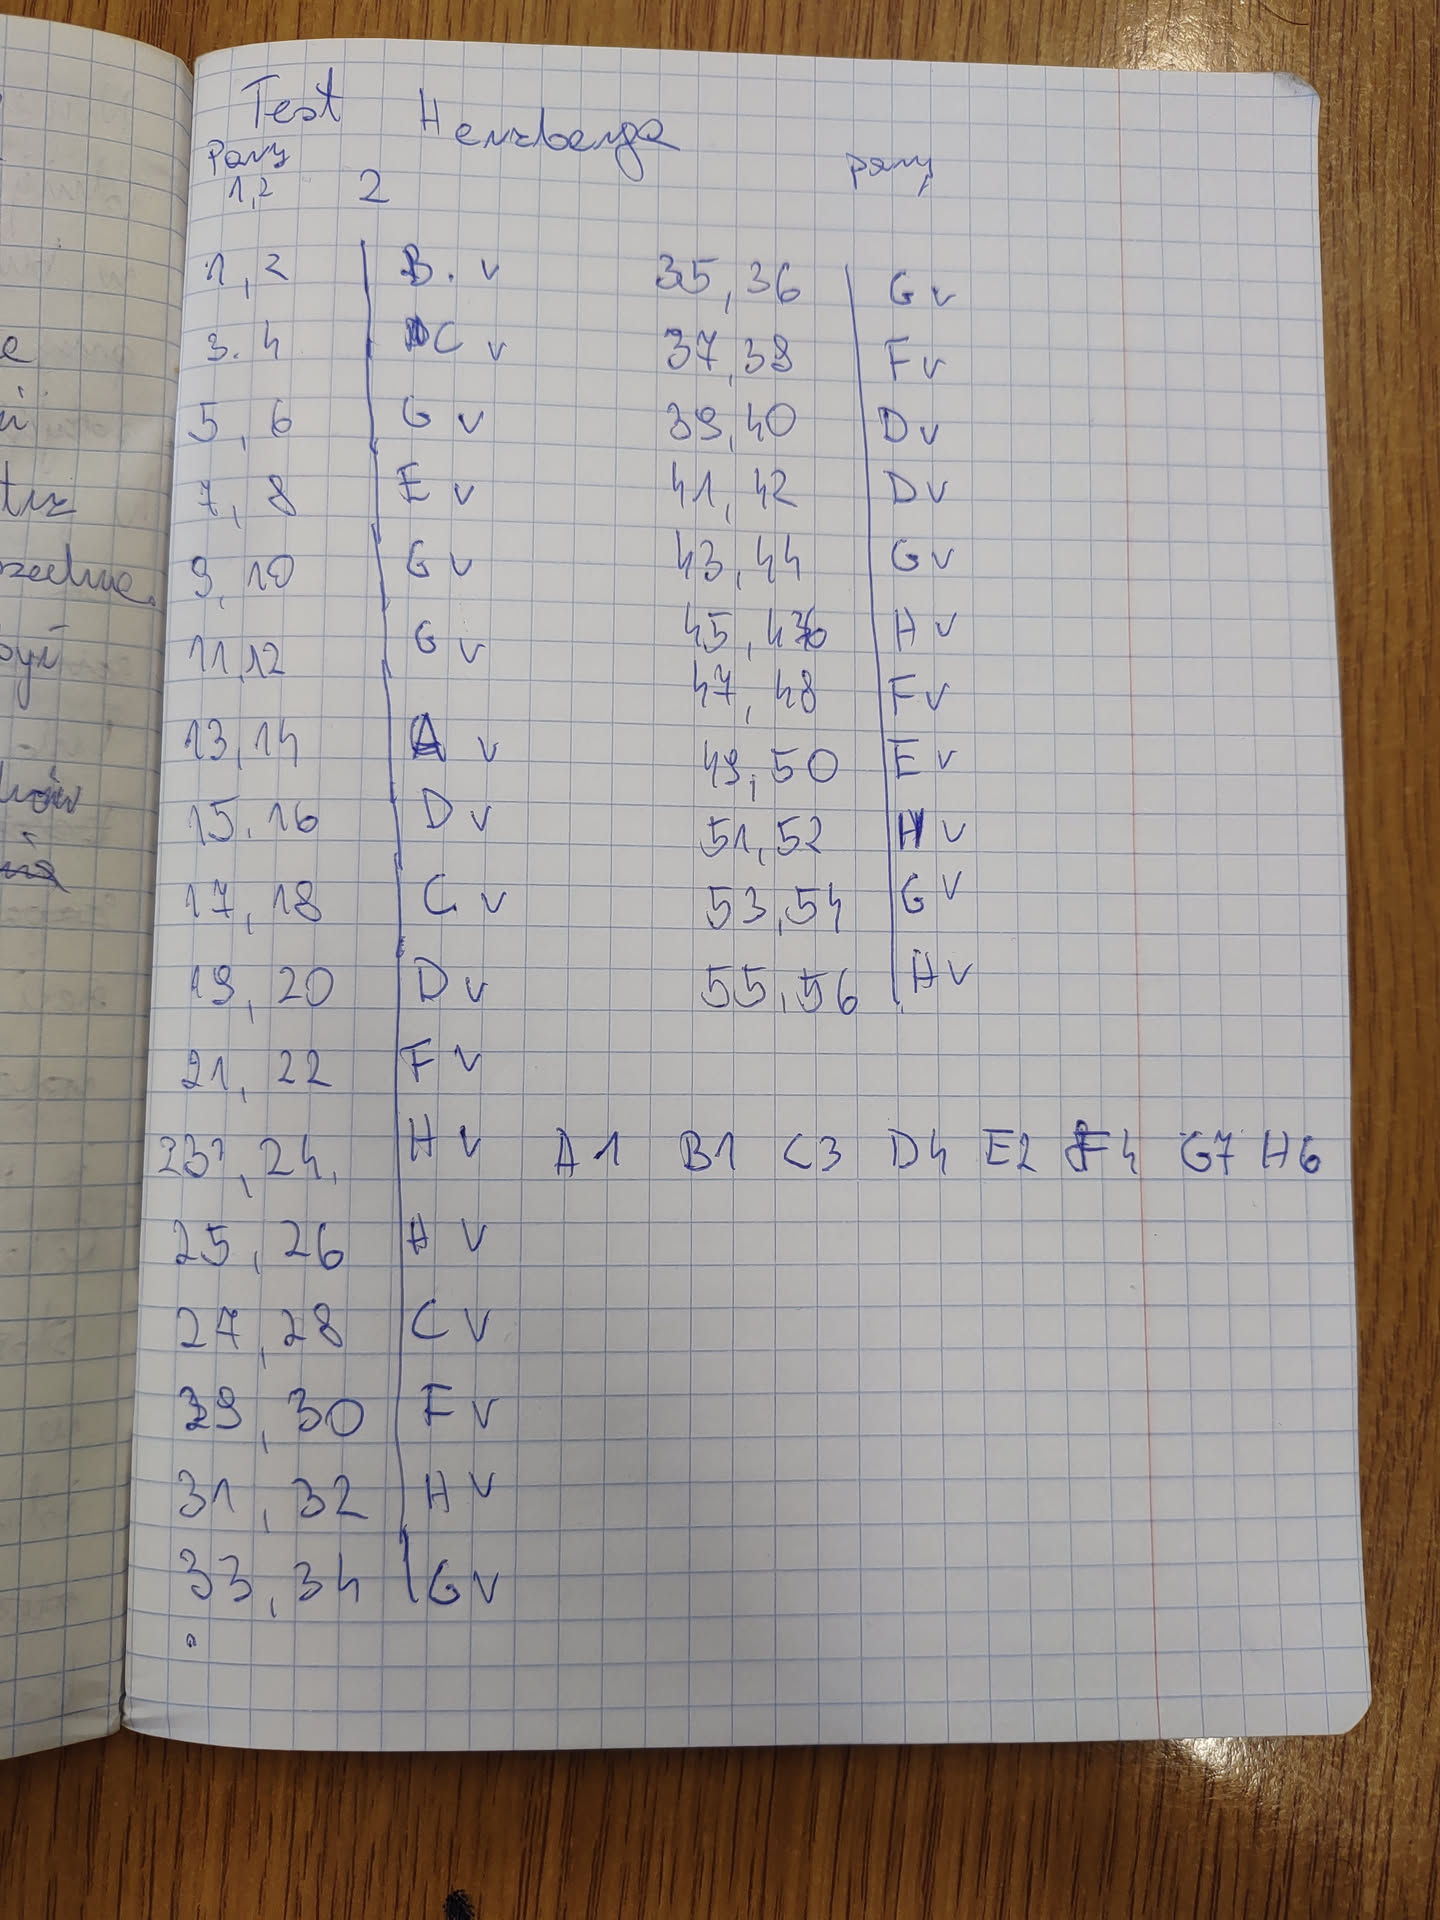 Test Herzberga
Pary
1,2 2
1,2 B. v
3.4 C v
5, 6 G v
7, 8 E v
9, 10 G v
11,12 G v
13,14 A v
15.16 D v
17, 18 C v
19, 20 D v
21, 22 F v
23, 24. H v
25, 26 H v
27, 28 C v
29, 30 F v
31, 32 H v
33, 34 G v
pary
35, 36 G v
37, 38 F v
39, 40 D v
41, 42 D v
43, 44 G v
45, 46 H v
47, 48 F v
49, 50 E v
51, 52 H v
53, 54 G v
55, 56 H v
A1 B1 C3 D4 E2 F4 G7 H6